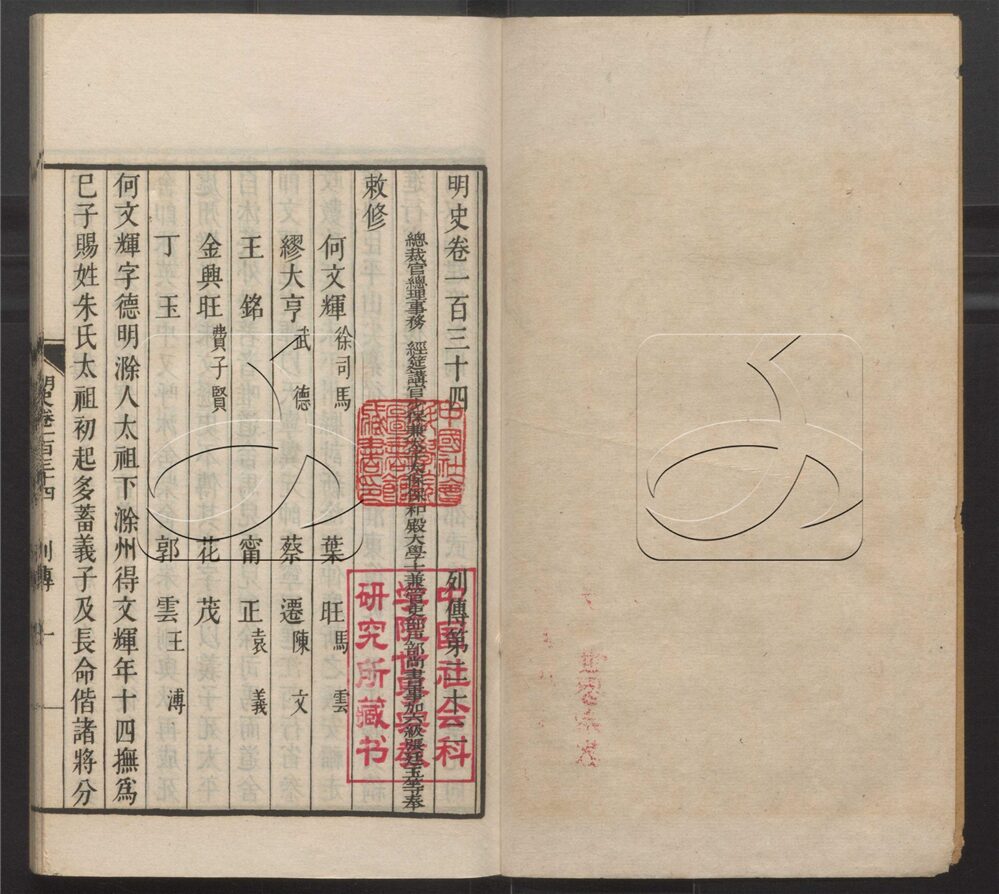 明史卷一百三十四 列傳第二十二
總裁官總理事務 經筵講官少保兼太子太保保和殿大學士兼管吏部戶部尚書事加六級張廷玉等奉
敕修
何文輝 徐司馬 葉旺 馬雲
繆大亨 武德 蔡遷 陳文
王銘 甯正 袁義
金興旺 費子賢 花茂
丁玉 郭雲 王溥
何文輝字德明滁人太祖下滁州得文輝年十四撫爲
巳子賜姓朱氏太祖初起多蓄義子及長命偕諸將分
明史卷一百三十四 列傳 一
中國社會
圖書館
藏書印
中国社会科
学院世界宗教
研究所藏书